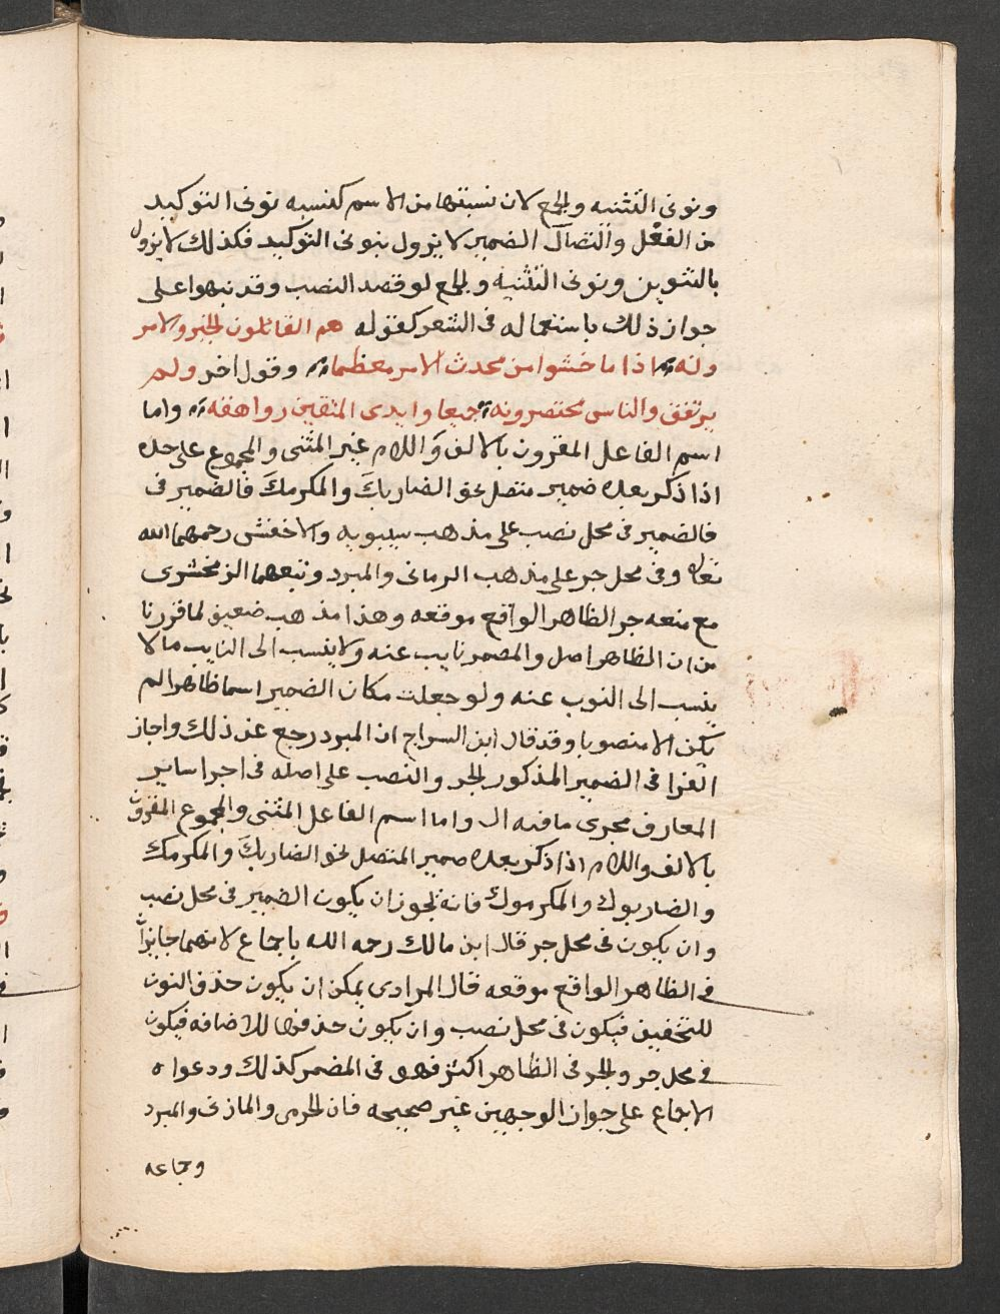 ونونى التثنيه والجمع لان نسبتها من الاسم كنسبه نونى التوكيد
من الفعل واتصال الضمير لا يزول بنونى التوكيد فكذلك لا يزول
بالتنوين ونونى التثنيه والجمع لو قصد النصب وقد نبهوا على
جواز ذلك باستعماله فى الشعر كقوله هم القائلون الخير والامر
ونه اذا ما خشوا من محدث الامر معظما وقول اخر ولم
يرتفق والناس محتضرونه جميعا وايدى المتقين رواهقه واما
اسم الفاعل المقرون بالالف واللام غير المثنى والمجموع على حده
اذا ذكر بعده ضمير متصل نحو الضاربكَ والمكرمكَ فالضمير فى
فالضمير فى محل نصب على مذهب سيبويه والاخفش رحمهما الله
تعالى وفى محل جر على مذهب الرمانى والمبرد وتبعهما الزمخشرى
مع منعه جر الظاهر الواقع موقعه وهذا مذهب ضعيف لما قررنا
من ان المظاهر اصل والمضمر نايب عنه ولا ينسب الى النايب ما لا
ينسب الى النوب عنه ولو جعلت مكان الضمير اسما ظاهرا لم
يكن الا منصوبا وقد قال ابن السراج ان المبرد رجع عن ذلك واجاز
الفرا فى الضمير المذكور الجر والنصب على اصله فى اجرا ساير
المعارف مجرى ما فيه ال واما اسم الفاعل المثنى والمجموع المقرون
بالالف واللام اذا ذكر بعده ضمير المتصل نحو الضاربكَ والمكرمك
والضاربوك والمكرموك فانه يجوز ان يكون الضمير فى محل نصب
وان يكون فى محل جر قال ابن مالك رحمه الله باجماع لانهما جايزان
فى الظاهر الواقع موقعه قال المرادى يمكن ان يكون حذف النون
للتخفيف فيكون فى محل نصب وان يكون حذفها للاضافه فيكون
فى محل جر والجر فى الظاهر اكثر فهو فى المضمر كذلك ودعواه
الاجماع على جواز الوجهين غير صحيحه فان الجرمى والمازنى والمبرد
وجماعه